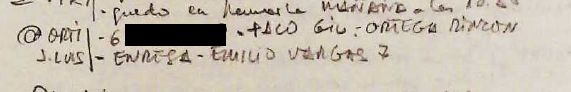 - quedo en llamarle MAÑANA a las 10.
@ ORTI - 6 . + PACO GIL : ORTEGA RINCON
J. LUIS - ENRESA - EMILIO VARGAS 7